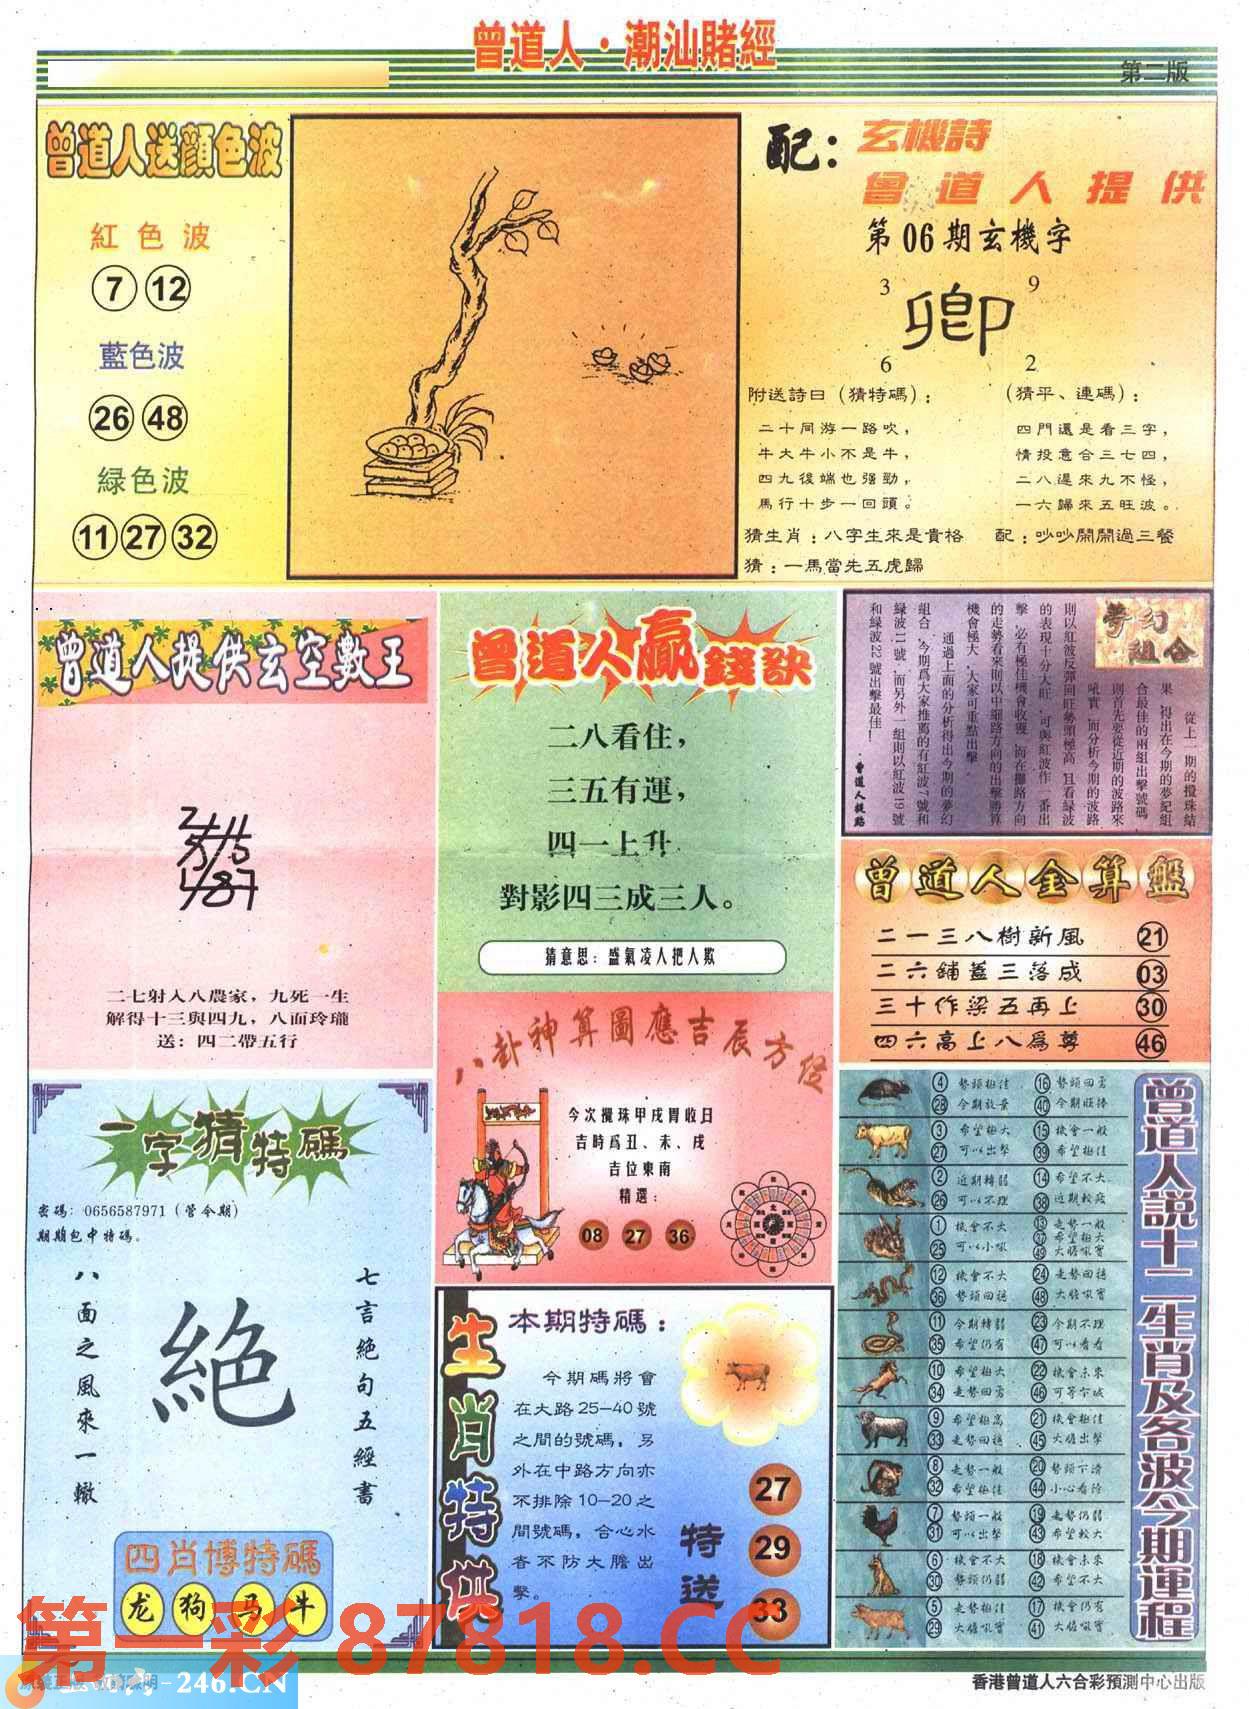 曾道人·潮汕賭經
第二版
曾道人送顏色波
紅色波
7 12
藍色波
26 48
緑色波
11 27 32
配：
玄機詩
曾道人提供
第06期玄機字
3 9
卿
6 2
附送詩曰（猜特碼）：
二十同游一路吹，
牛大牛小不是牛，
四九後端也强勁，
馬行十步一回頭。
（猜平、連碼）：
四門還是看三字，
情投意合三七四，
二八遲來九不怪，
一六歸來五旺波。
猜生肖：八字生來是貴格
配：吵吵鬧鬧過三餐
猜：一馬當先五虎歸
曾道人提供玄空數王
二七射入八農家，九死一生
解得十三與四九，八面玲瓏
送：四二帶五行
曾道人贏錢訣
二八看住，
三五有運，
四一上升，
對影四三成三人。
猜意思：盛氣凌人把人欺
夢幻組合
從上一期的攪珠結
果，得出在今期的夢幻組
合最佳的兩組出擊號碼，
則首先要從近期的波路來
吼實，而分析今期的波路
則以紅波反彈回旺勢頭極高，且看緑波
的表現十分大旺，可與紅波作一番出
擊，必有極佳機會收獲，而在攤路方向
的走勢看來則以中龍路方向的出擊勝算
機會極大，大家可重點出擊。
通過上面的分析得出今期的夢幻
組合，今期爲大家推薦的有紅波7號和
緑波11號，而另外一組則以紅波19號
和緑波22號出擊最佳！
·曾道人提點
曾道人金算盤
二一三八樹新風 21
二六鋪蓋三落成 03
三十作梁五再上 30
四六高上八爲尊 46
八卦神算圖應吉辰方位
今次攪珠甲戌胃收日
吉時爲丑、未、戌
吉位東南
精選：
08 27 36
一字猜特碼
密碼：0656587971（管今期）
期期包中特碼。
七言絶句五經書
絶
八面之風來一轍
四肖博特碼
龙 狗 马 牛
生肖特供
本期特碼：
今期碼將會
在大路25—40號
之間的號碼，另
外在中路方向亦
不排除10—20之
間號碼，合心水
者不防大膽出
擊。
特送
27
29
33
曾道人説十二生肖及各波今期運程
4 勢頭極佳 16 勢頭回勇
28 今期放棄 40 今期旺捧
3 希望極大 15 機會一般
27 可以出擊 39 希望極佳
2 近期轉弱 14 希望不大
26 可以不理 38 近期較疲
1 機會不大 13 走勢一般
37 希望極大
25 可以小吼 49 大膽吼實
12 機會不大 24 走勢回穩
36 勢頭回穩 48 大膽吼實
11 今期轉弱 23 今期不理
35 希望仍有 47 可以看看
10 希望極大 22 機會未來
34 走勢回勇 46 可等下城
9 希望極高 21 機會極佳
33 走勢回穩 45 大膽出擊
8 走勢一般 20 勢頭下滑
32 希望極佳 44 小心看待
7 勢頭一般 19 走勢仍弱
31 可以出擊 43 希望較大
6 機會不大 18 機會未來
30 勢頭仍弱 42 希望不大
5 走勢極佳 17 機會仍有
29 大膽吼實 41 大膽吼實
第一彩 87818.CC
246.CN
香港曾道人六合彩預測中心出版